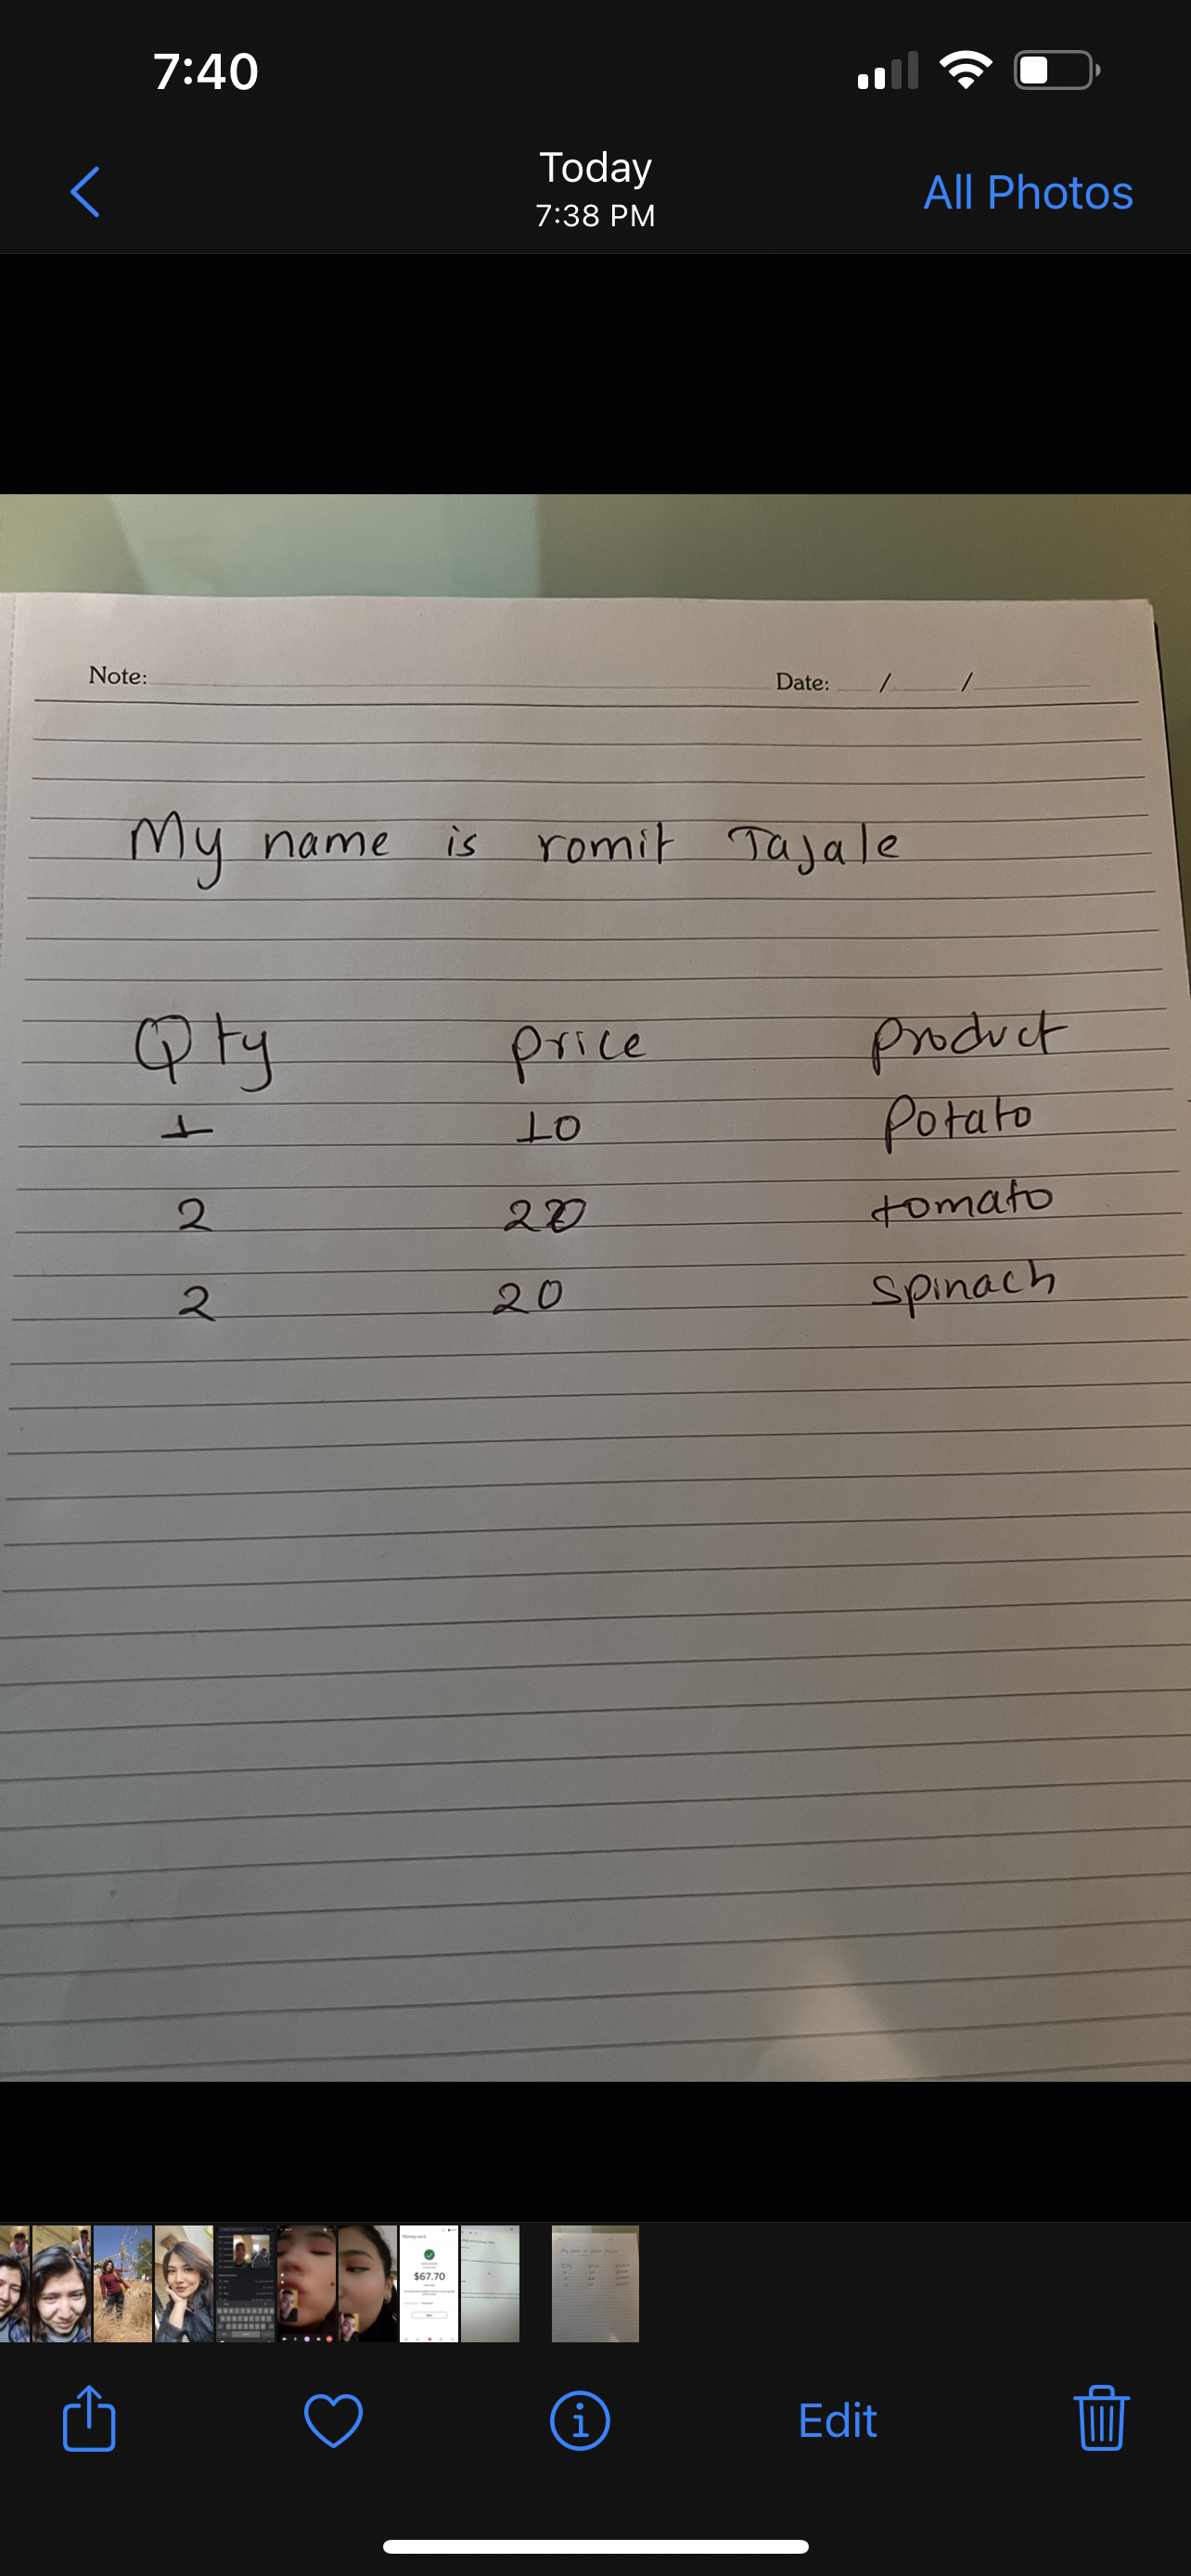 7:40
Today
7:38 PM
All Photos
Note: Date: / /
My name is romit Tajale
Qty price product
1 10 Potato
2 20 tomato
2 20 spinach
Money sent
$67.70
Edit